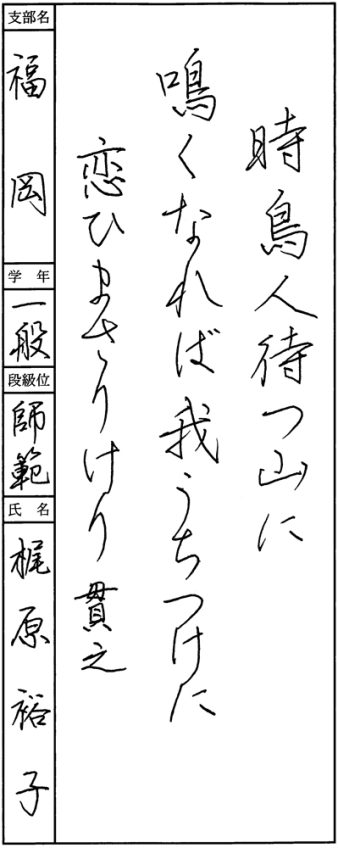 時鳥人待つ山に
鳴くなれば我うちつけに
恋ひまさりけり 貫之
支部名
福岡
学年
一般
段級位
師範
氏名
梶原裕子